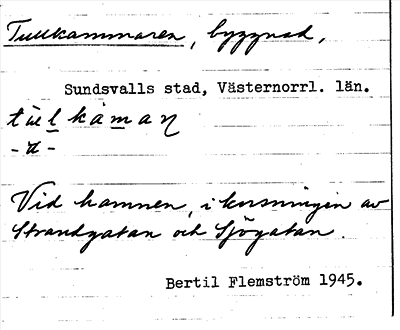 Tullkammaren, byggnad,
Sundsvalls stad, Västernorrl. län.
Vid hamnen, i korsningen av
Strandgatan och Sjögatan.
Bertil Flemström 1945.